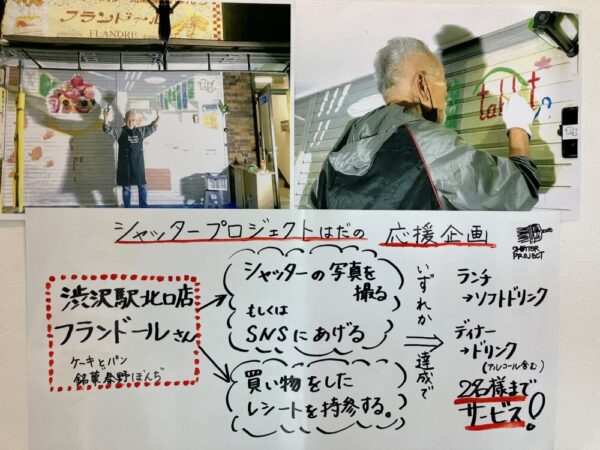 フランドール
FLANDRE
talkt
シャッタープロジェクトはだの 応援企画
SHUTTER
PROJECT
渋沢駅北口店
フランドールさん
ケーキとパン
銘菓 春野ぼんぢ
シャッターの写真を
撮る
もしくは
SNSにあげる
買い物をした
レシートを持参する。
いずれか達成で
ランチ
→ソフトドリンク
ディナー
→ドリンク
(アルコール含む)
2名様まで
サービス!